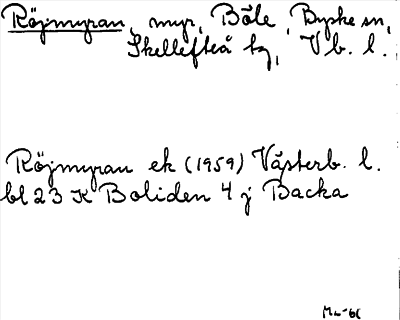 Röjmyran, myr, Böle, Byske sn,
Skellefteå tg, Vb. l.
Röjmyran ek (1959) Västerb. l.
bl 23 K Boliden 4 j Backa